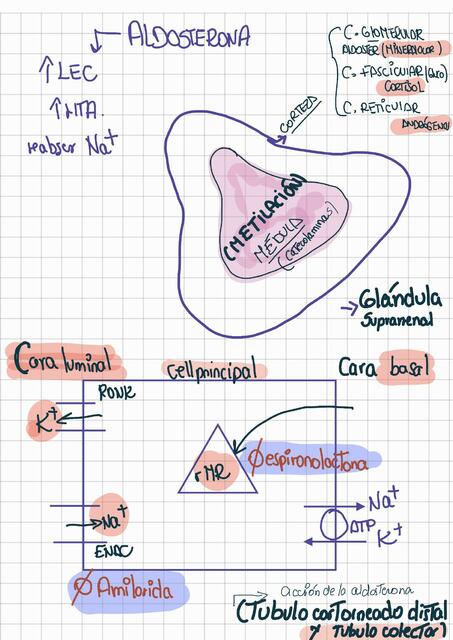 ALDOSTERONA
↑LEC
↑HTA.
reabser Na⁺
C. GLOMERULOR
ALDOSTER (MINERALOCOR)
C. FASCICULAR (Gluco)
CORTISOL
C. RETICULAR
ANDRÓGENO
CORTEZA
(METILACIÓN)
MÉDULA
(catecolaminas)
→ Glándula
Suprarrenal
Cara luminal
Cell principal
Cara basal
ROMK
K⁺
rMR
Ø espironolactona
Na⁺
ENAC
Na⁺
ATP
K⁺
Ø Amilorida
acción de la aldosterona
(Tubulo contorneado distal
y Tubulo colector)